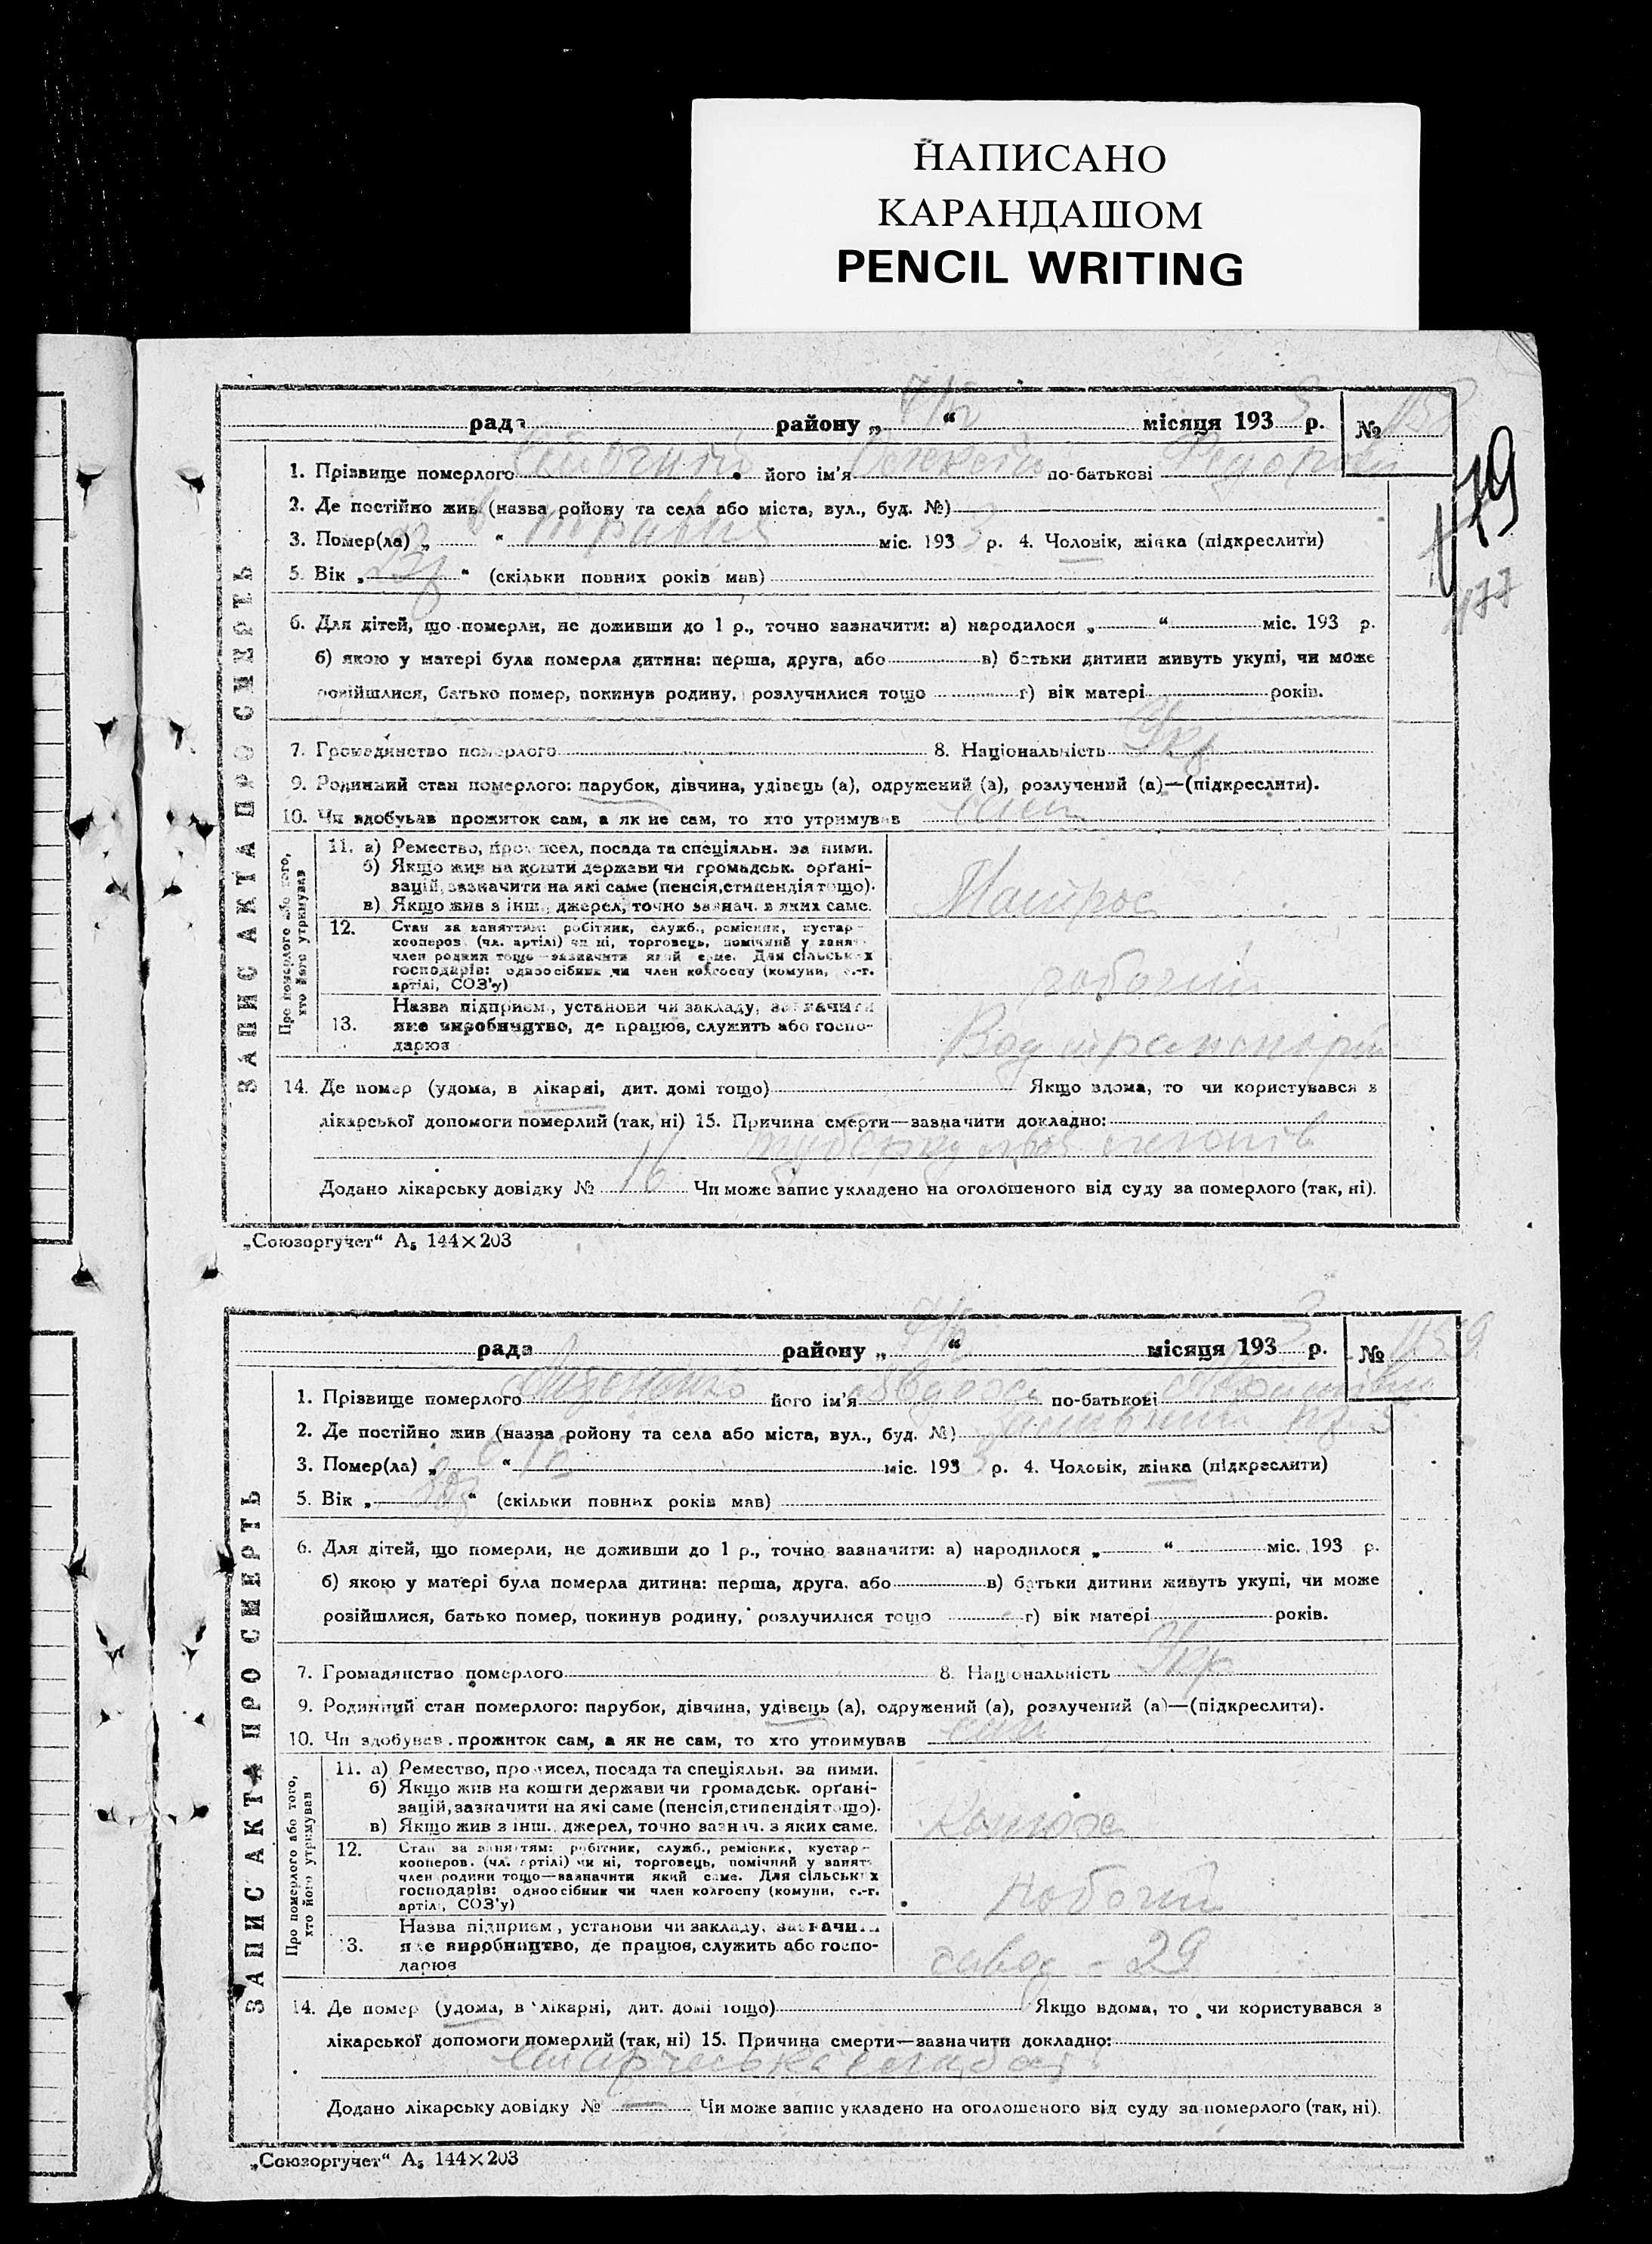 НАПИСАНО
КАРАНДАШОМ
PENCIL WRITING
рада району „ 7/V “ місяця 193 3 р. № 1158
1. Прізвище померлого його ім'я Олексій по-батькові Федоров
2. Де постійно жив (назва ройону та села або міста, вул., буд. №)
3. Помер(ла) „ 6 “ травня міс. 193 3 р. 4. Чоловік, жінка (підкреслити)
5. Вік „ 23 “ (скільки повних років мав)
479
477
6. Для дітей, що померли, не доживши до 1 р., точно зазначити: а) народилося „ “ міс. 193 р.
б) якою у матері була померла дитина: перша, друга, або в) батьки дитини живуть укупі, чи може
розійшлися, батько помер, покинув родину, розлучилися тощо г) вік матері років.
7. Громадянство померлого 8. Національність Укр
9. Родинний стан померлого: парубок, дівчина, удівець (а), одружений (а), розлучений (а)—(підкреслити).
10. Чи здобував прожиток сам, а як не сам, то хто утримував сам
ЗАПИС АКТА ПРО СМЕРТЬ
Про померлого або того,
хто його утримував
11. а) Ремество, промисел, посада та спеціяльн. за ними.
б) Якщо жив на кошти держави чи громадськ. орґані-
зацій, зазначити на які саме (пенсія, стипендія тощо).
в) Якщо жив з інш. джерел, точно зазнач. з яких саме.
Матрос
12. Стан за заняттям: робітник, служб., ремісник, кустар-
кооперов. (чл. артілі) чи ні, торговець, помічний у занят.
член родини тощо—зазначити який саме. Для сільських
господарів: одноосібник чи член колгоспу (комуни, с.-г.
артілі, СОЗ'у)
робочий
13. Назва підприєм., установи чи закладу, зазначити
яке виробництво, де працює, служить або госпо-
дарює
Водтранспорт
14. Де помер (удома, в лікарні, дит. домі тощо) Якщо вдома, то чи користувався з
лікарської допомоги померлий (так, ні) 15. Причина смерти—зазначити докладно:
туберкульоз легенів
Додано лікарську довідку № 16 Чи може запис укладено на оголошеного від суду за померлого (так, ні).
„Союзоргучет“ А₅ 144×203
рада району „ 7/V “ місяця 193 3 р. № 1159
1. Прізвище померлого його ім'я Явдоха по-батькові
2. Де постійно жив (назва ройону та села або міста, вул., буд. №)
3. Помер(ла) „ 6 “ V міс. 193 3 р. 4. Чоловік, жінка (підкреслити)
5. Вік „ “ (скільки повних років мав)
6. Для дітей, що померли, не доживши до 1 р., точно зазначити: а) народилося „ “ міс. 193 р.
б) якою у матері була померла дитина: перша, друга, або в) батьки дитини живуть укупі, чи може
розійшлися, батько помер, покинув родину, розлучилися тощо г) вік матері років.
7. Громадянство померлого 8. Національність Укр
9. Родинний стан померлого: парубок, дівчина, удівець (а), одружений (а), розлучений (а)—(підкреслити).
10. Чи здобував прожиток сам, а як не сам, то хто утримував син
ЗАПИС АКТА ПРО СМЕРТЬ
Про померлого або того,
хто його утримував
11. а) Ремество, промисел, посада та спеціяльн. за ними.
б) Якщо жив на кошти держави чи громадськ. орґані-
зацій, зазначити на які саме (пенсія, стипендія тощо).
в) Якщо жив з інш. джерел, точно зазнач. з яких саме.
Конюх
12. Стан за заняттям: робітник, служб., ремісник, кустар-
кооперов. (чл. артілі) чи ні, торговець, помічний у занят.
член родини тощо—зазначити який саме. Для сільських
господарів: одноосібник чи член колгоспу (комуни, с.-г.
артілі, СОЗ'у)
робочий
13. Назва підприєм., установи чи закладу, зазначити
яке виробництво, де працює, служить або госпо-
дарює
завод - 29
14. Де помер (удома, в лікарні, дит. домі тощо) Якщо вдома, то чи користувався з
лікарської допомоги померлий (так, ні) 15. Причина смерти—зазначити докладно:
старческа слабост
Додано лікарську довідку № — Чи може запис укладено на оголошеного від суду за померлого (так, ні).
„Союзоргучет“ А₅ 144×203